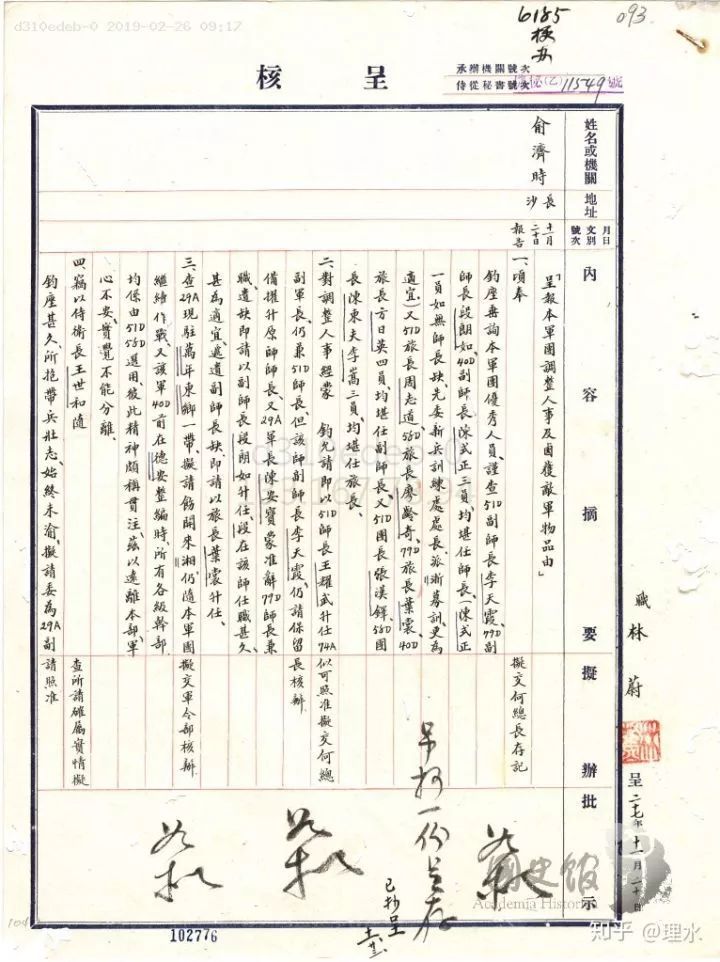 d310edeb-0 2019-02-26 09:17
6185
093.
呈核
承辦機關號次
侍從秘書號次
侍秘(乙)11549號
姓名或機關
地址
月日
文別
號次
內容摘要
擬辦
批示
俞濟時
長沙
十一月
二十日
報告
「呈報本軍團調整人事及鹵獲敵軍物品由」
一、頃奉
鈞座垂詢本軍團優秀人員、謹查51D副師長李天霞、79D副
師長段朗如、40D副師長陳式正三員、均堪任師長(陳式正
一員如無師長缺、先委新兵訓練處處長、派浙募訓更為
適宜)又51D旅長周志道、58D旅長廖齡奇、79D旅長葉裳、40D
旅長方日英四員均堪任副師長、又51D團長張漢鐸、58D團
長陳東夫、李嵩三員均堪任旅長、
二、對調整人事經蒙 鈞允請即以51D師長王耀武升任74A
副軍長、仍兼51D師長、但該師副師長李天霞仍請保留
備擢升原師師長、又29A軍長陳安寶蒙准辭79D師長兼
職、遺缺即請以副師長段朗如升任、段在該師任職甚久、
甚為適宜、遞遺副師長缺、即請以旅長葉裳升任、
三、查29A現駐萬年東鄉一帶、擬請飭開來湘、仍隨本軍團
繼續作戰、又該軍40D前在德安整編時、所有各級幹部
均係由51D58D選用、彼此精神頗稱貫注、茲以遠離本部、軍
心不安、實覺不能分離、
四、竊以侍衛長王世和隨
鈞座甚久、所抱帶兵壯志、始終未渝、擬請委為29A副
擬交何總長存記
似可照准擬交何總
長核辦
擬交軍令部核辦
查所請確屬實情擬
請照准
呈核一份
已抄呈
職林蔚
呈 二十七年十一月二十日
d310edeb-0
102776
國史館
Academia Historica
知乎 @理水